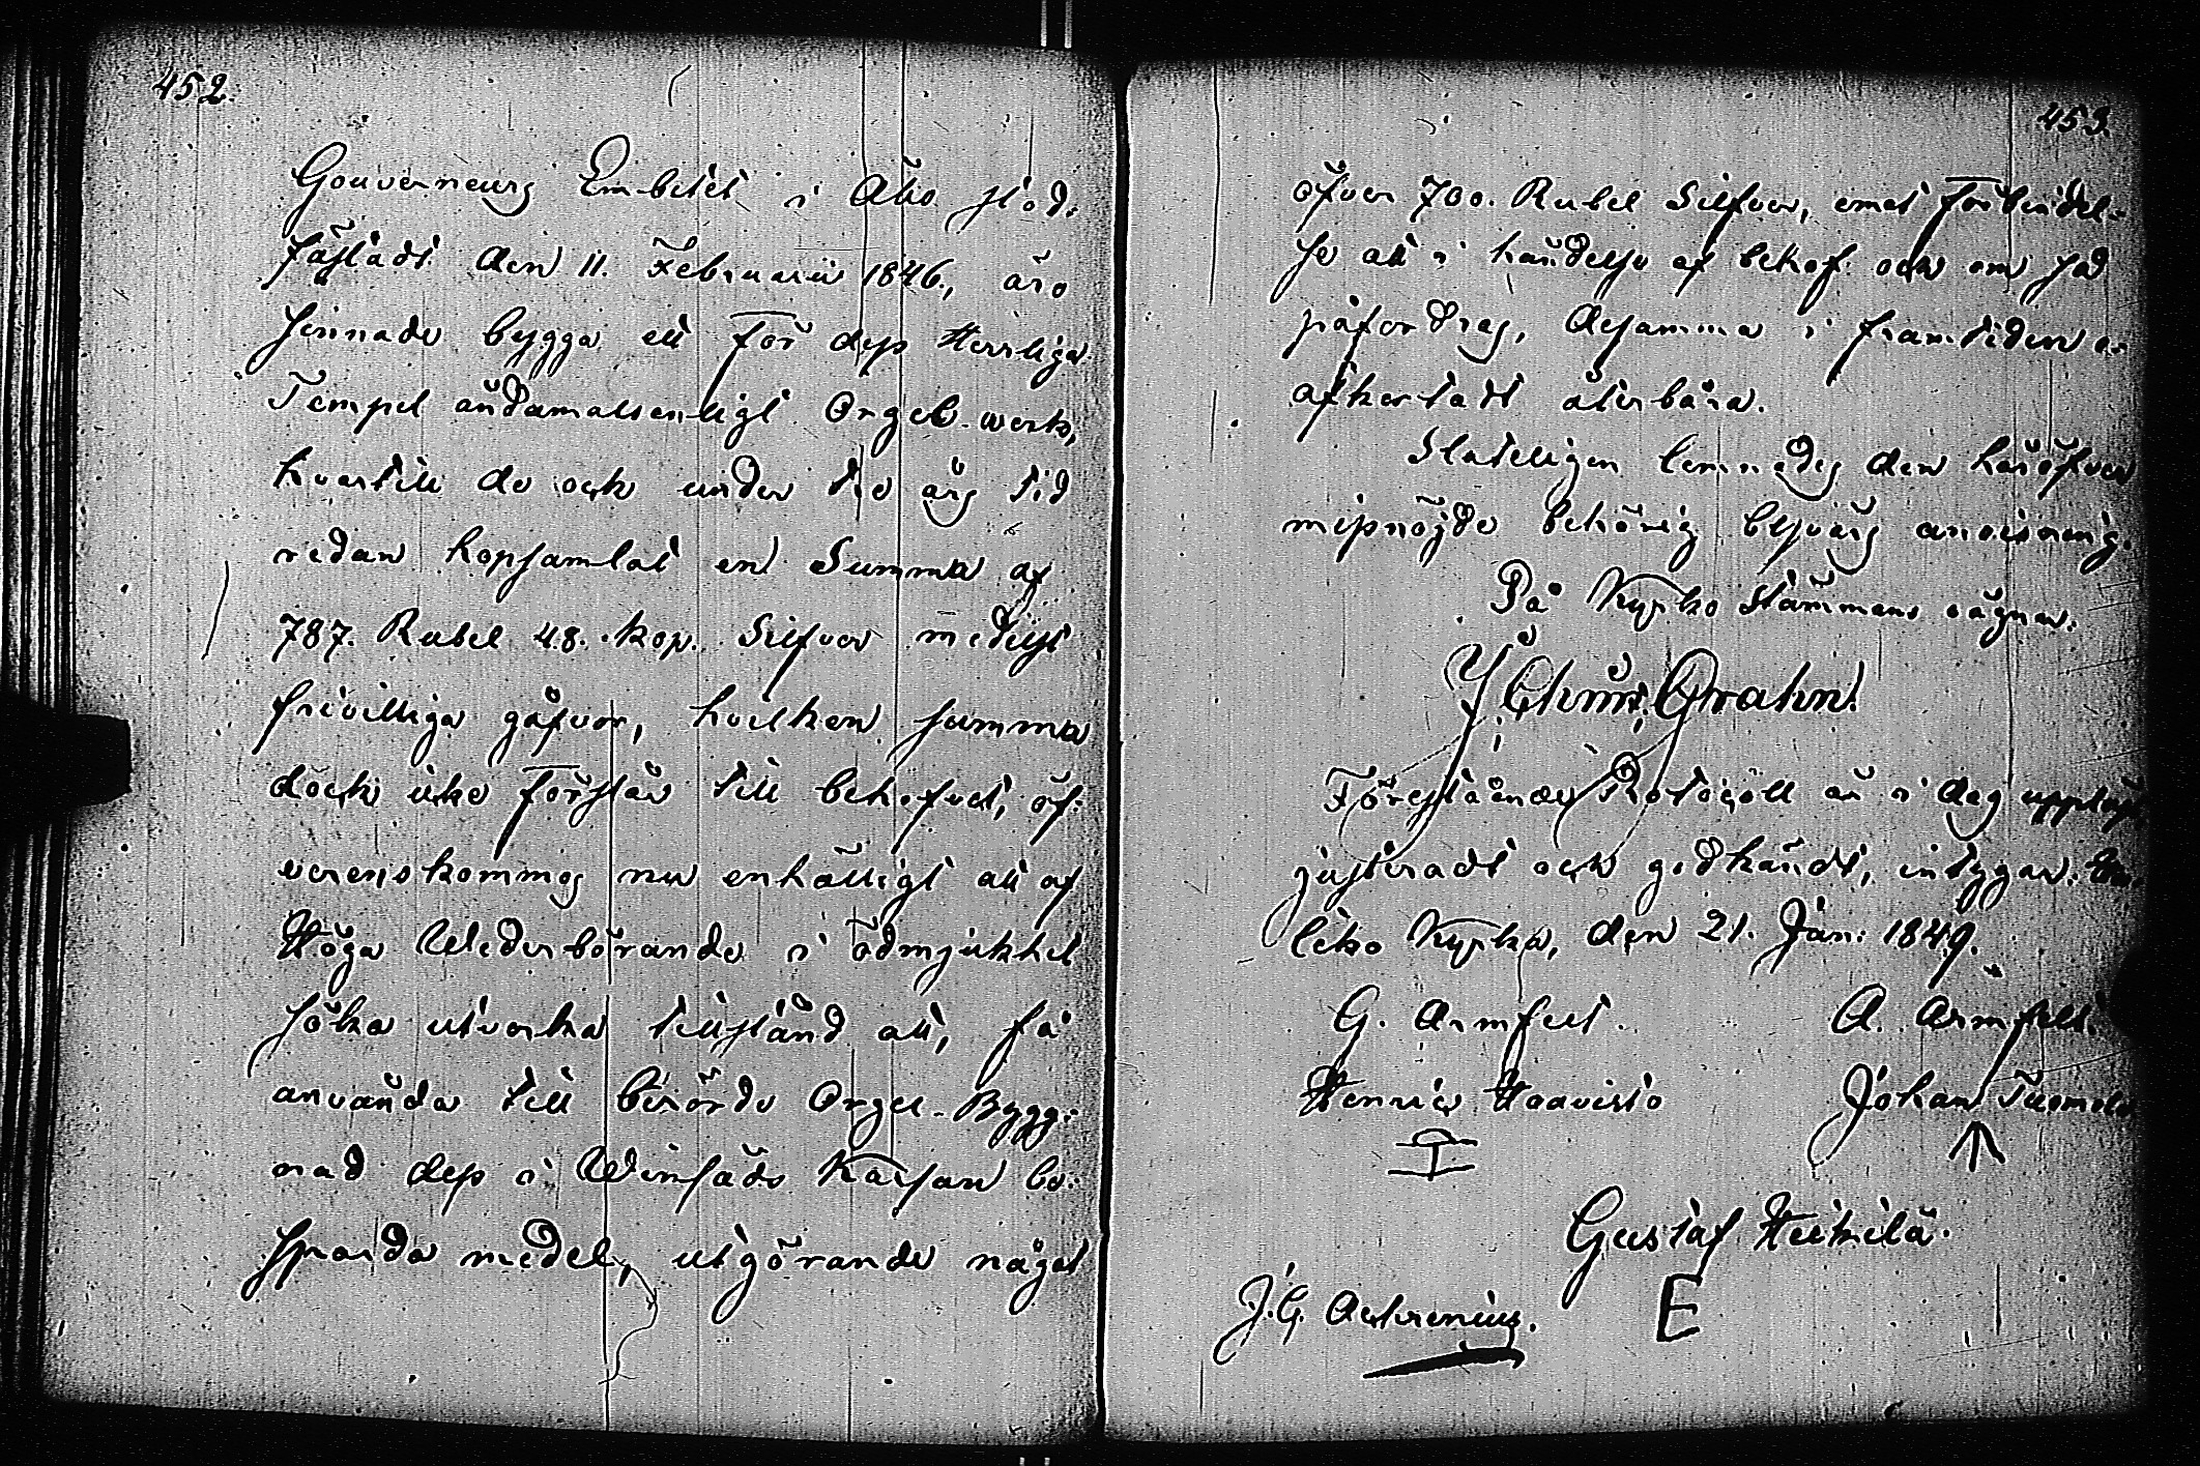 452.
Gouverneurs Embetet i Åbo stad:
fästadt den 11. Februarii 1846., äro
sinnade bygga ett för dess Herrliga
Tempel ändamålsenligt Orgel-werk,
hvartill de ock under tre års tid
redan hopsamlat en Summa af
787. Rubel 48. kop. Silfver medelst
frivilliga gåfvor, hvilken summa
dock icke förslår till behofvet, öf:
verenskommos nu enhälligt att af
Höga Wederbörande i ödmjukhet
söka utverka tillstånd att, få
använda till berörde Orgel-Bygg:
nad dess i Winfåds Kassan be:
sparda medel, utgörande något
453.
öfver 700. Rubel Silfver, emot förbindel:
se att i händelse af behof och om så
påfordras, desamma i framtiden o:
afkortadt återbära.
Slutelligen lemnades den häröfver
missnöjde behörig besvärs anvisning.
På Kyrko Stämmans vägnar.
J. Chnr. Grahn.
Förestående Protocoll är i dag uppläst
justeradt och godkändt, intygar.
leko Kyrka, den 21. Jan: 1849.
G. Armfelt. A. Armfelt.
Henric Haavisto Johan Tuomola
Gustaf Heikilä.
J. G. Achrenius. E